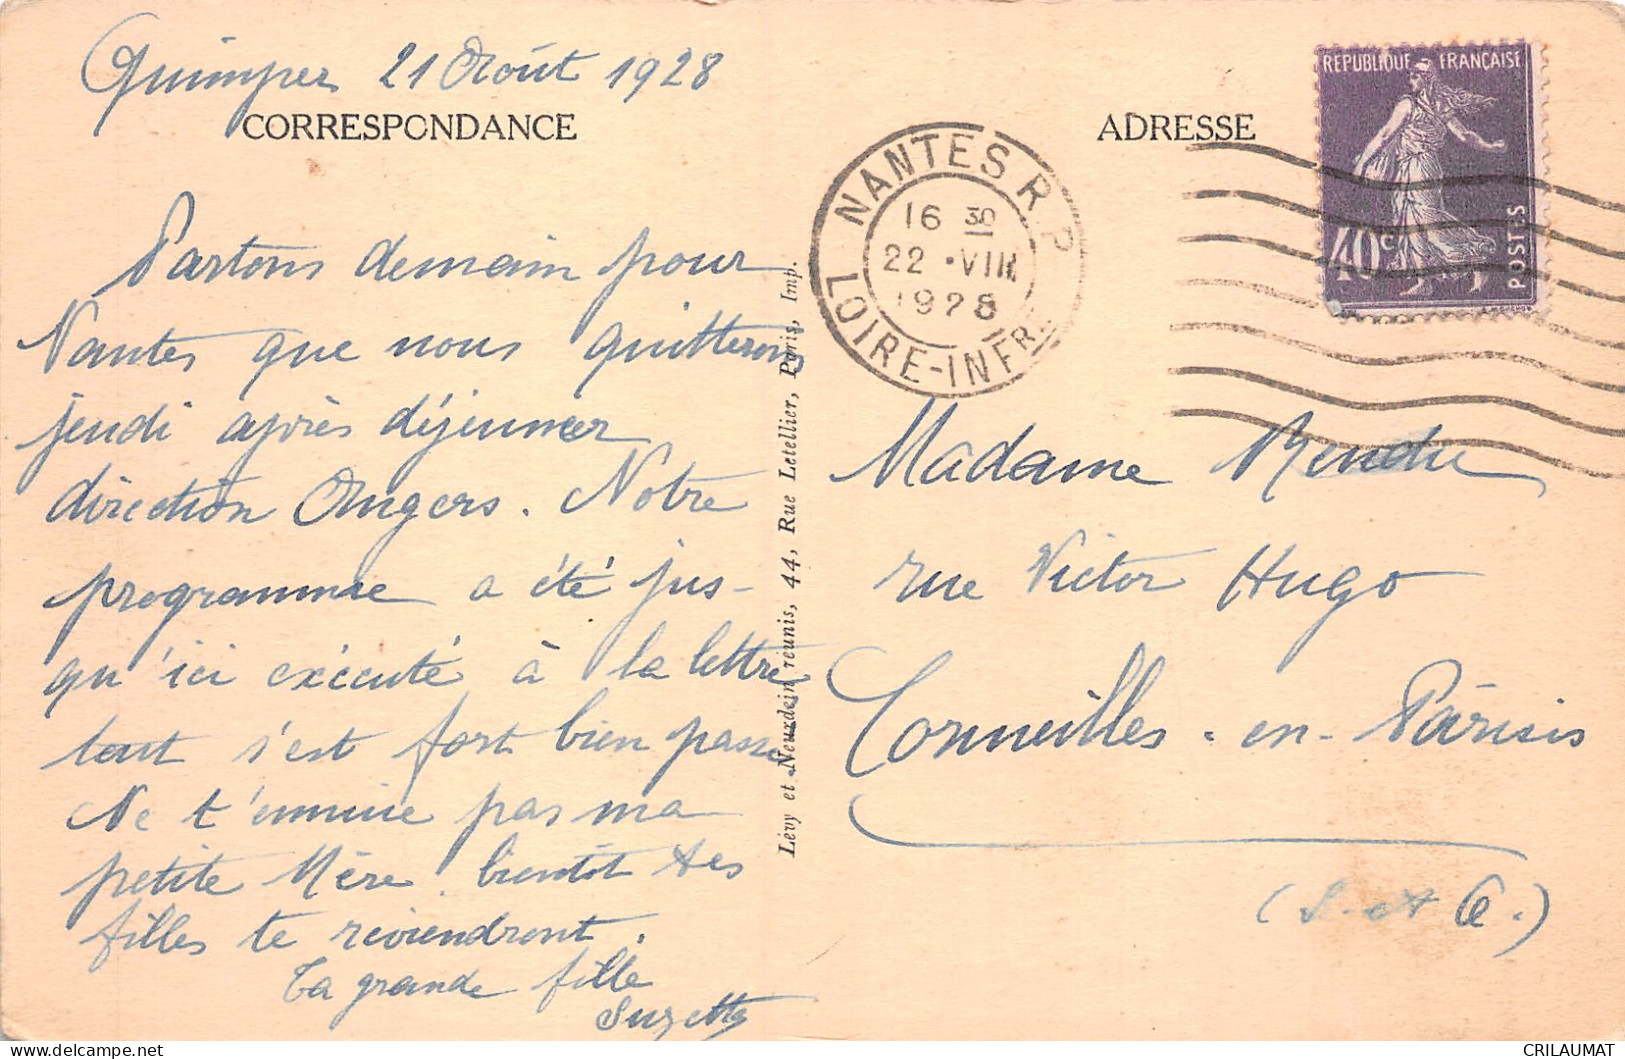 Quimper 21 Août 1928
CORRESPONDANCE
Partons demain pour
Nantes que nous quitterons
jeudi après déjeuner
direction Angers. Notre
programme a été jus-
qu'ici exécuté à la lettre
tout s'est fort bien passé
Ne t'ennuie pas ma
petite Mère. bientôt tes
filles te reviendront.
Ta grande fille
Suzette
Lévy et Neurdein réunis, 44, Rue Letellier, Paris, Imp.
NANTES R.P.
16 30
22 • VIII
1928
LOIRE-INFRE
ADRESSE
REPUBLIQUE FRANÇAISE
40c
POSTES
Madame
rue Victor Hugo
Cormeilles-en-Parisis
(S. et O.)
CRILAUMAT
delcampe.net